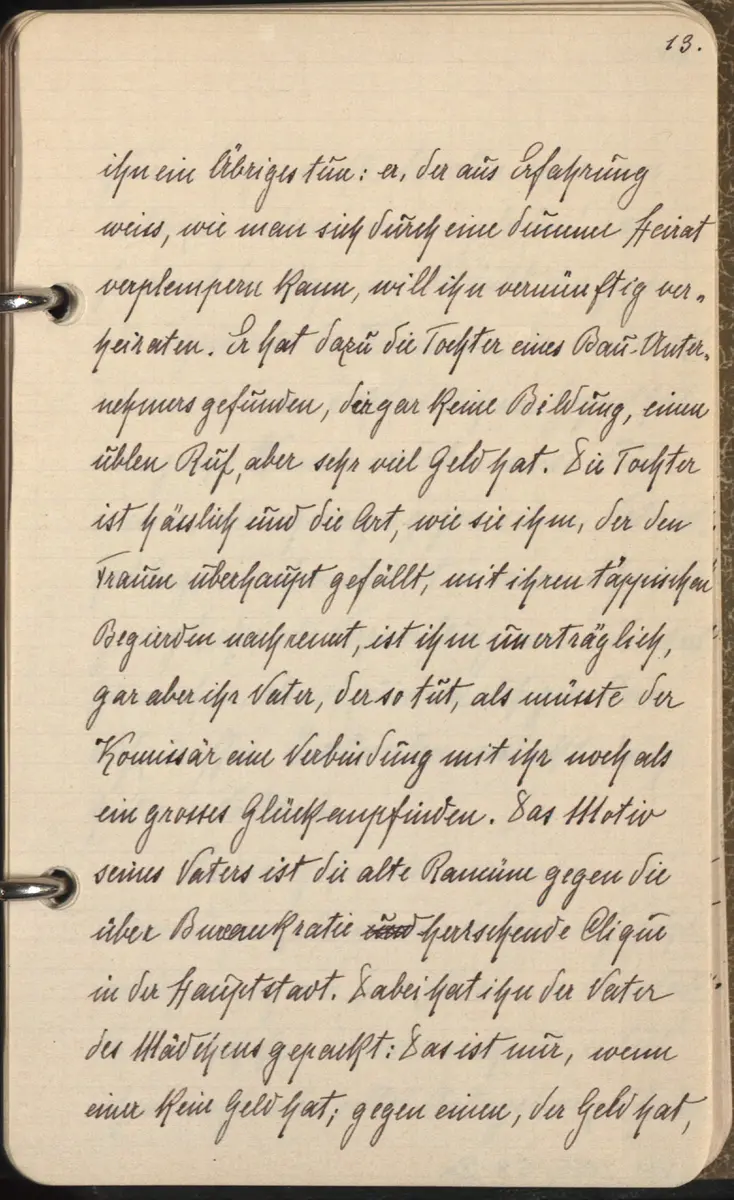 13.
ihn ein Übriges tun: er, der aus Erfahrung
weiss, wie man sich durch eine dumme Heirat
verplempern kann, will ihn vernünftig ver-
heiraten. Er hat dazu die Tochter eines Bau-Unter-
nehmers gefunden, der gar keine Bildung, einen
üblen Ruf, aber sehr viel Geld hat. Die Tochter
ist hässlich und die Art, wie sie ihm, der den
Frauen überhaupt gefällt, mit ihren täppischen
Begierden nachrennt, ist ihm unerträglich,
gar aber ihr Vater, der so tut, als müsste der
Komissär eine Verbindung mit ihr noch als
ein grosses Glück empfinden. Das Motiv
seines Vaters ist die alte Rancüne gegen die
über Bureaukratie und herrschende Clique
in der Hauptstadt. Dabei hat ihn der Vater
des Mädchens gepackt: Das ist nur, wenn
einer kein Geld hat; gegen einen, der Geld hat,